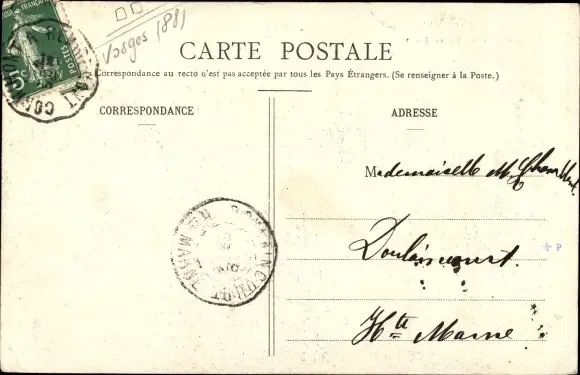 Vosges (88)
CARTE POSTALE
Correspondance au recto n'est pas acceptée par tous les Pays Étrangers. (Se renseigner à la Poste.)
CORRESPONDANCE
ADRESSE
Mademoiselle M.
Doulaincourt
Hte Marne
DOULAINCOURT
HTE MARNE
POSTES
5c